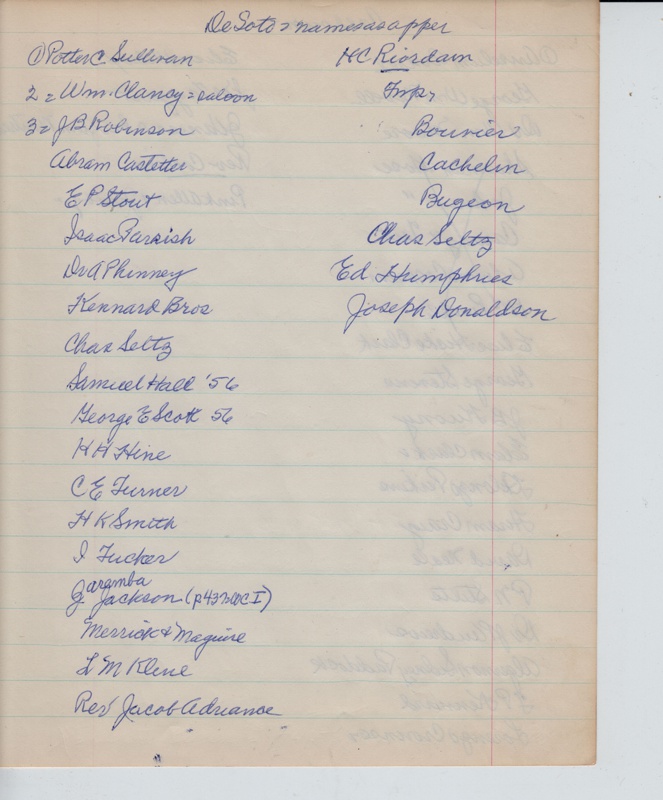 De Soto = names as apper
① Potter C. Sullivan
2 = Wm. Clancy = saloon
3 = J B Robinson
Abram Castetter
E P Stout
Isaac Parrish
Dr A Phinney
Kennard Bros
Chas Seltz
Samuel Hall '56
George E Scott 56
H H Hine
C E Turner
H K Smith
I Tucker
J Jackson
Merrick & Maguire
L M Kline
Rev Jacob Adriance
H C Riordam
Imp,
Bouvier
Cachelin
Bugeon
Chas Seltz
Ed Humphries
Joseph Donaldson